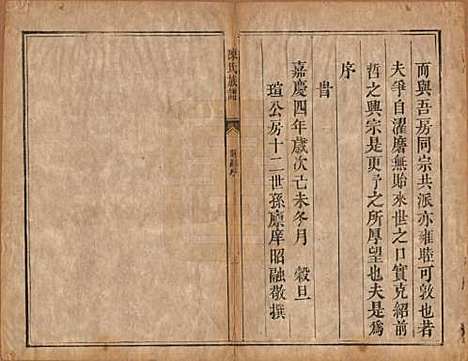 而與吾房同宗共派亦雍睦可敦也若
夫爭自濯磨無貽來世之口實克紹前
哲之興宗是更予之所厚望也夫是爲
序
旹
嘉慶四年歲次己未冬月　穀旦
瑄公房十二世孫廪庠昭融敬撰
陳氏族譜